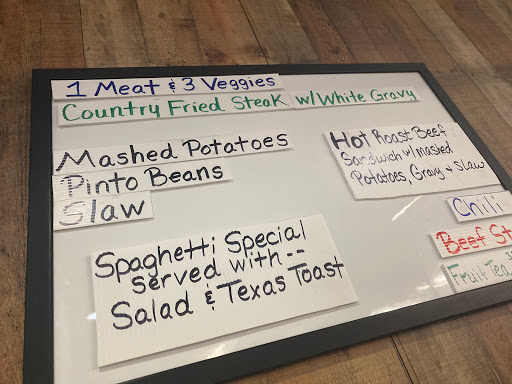 1 Meat & 3 Veggies
Country Fried Steak w/White Gravy
Mashed Potatoes
Pinto Beans
Slaw
Hot Roast Beef
Sandwich w/mashed
Potatoes, Gravy & Slaw
Chili
Beef St
Fruit Tea
Spaghetti Special
served with --
Salad & Texas Toast